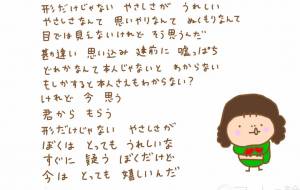 形だけじゃない やさしさが うれしい
やさしさなんて 思いやりなんて ぬくもりなんて
目では見えないけれど そう思うんだ
勘違い 思い込み 建前に 嘘っぱち
どれかなんて本人じゃないと わからない
もしかすると本人さえもわからない?
けれど 今 思う
君から もらう
形だけじゃない やさしさが
ぼくは とっても うれしいな
すぐに 疑う ぼくだけど
今は とっても 嬉しいんだ